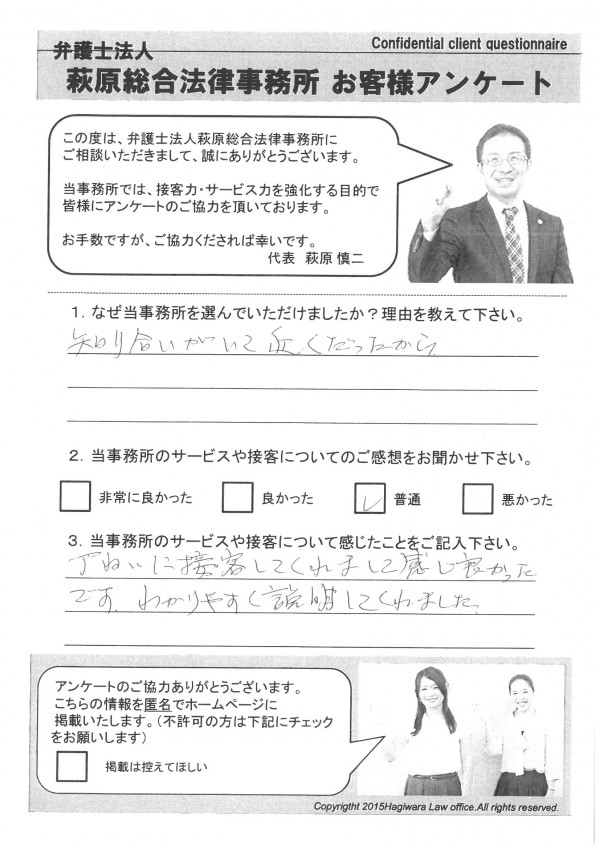 Confidential client questionnaire
弁護士法人
萩原総合法律事務所 お客様アンケート
この度は、弁護士法人萩原総合法律事務所に
ご相談いただきまして、誠にありがとうございます。
当事務所では、接客力・サービス力を強化する目的で
皆様にアンケートのご協力を頂いております。
お手数ですが、ご協力くだされば幸いです。
代表 萩原 慎二
1. なぜ当事務所を選んでいただけましたか？理由を教えて下さい。
知り合いがいて近くだったから
2. 当事務所のサービスや接客についてのご感想をお聞かせ下さい。
非常に良かった 良かった 普通 悪かった
3. 当事務所のサービスや接客について感じたことをご記入下さい。
丁ねいに接客してくれまして感じ良かった
です。わかりやすく説明してくれました。
アンケートのご協力ありがとうございます。
こちらの情報を匿名でホームページに
掲載いたします。（不許可の方は下記にチェック
をお願いします）
掲載は控えてほしい
Copyritght 2015Hagiwara Law office.All rights reserved.